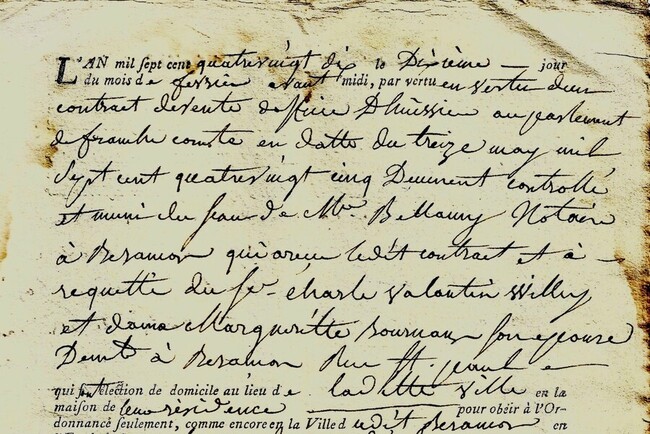 L'AN mil sept cent quatrevingt dix le Dixième — jour
du mois de fevrier avant midi, par vertu en vertu d'un
contract de vente d'office D'huissier au parlement
de franche comte en datte du treize may mil
Sept cent quatrevingt cinq Deument controllé
et muni du seau de Me. Bellamy Notaire
à Besancon qui a receu ledit contract et à -
requette du Sr. Charle Valentin Willy
et dame Margueritte son epouse
Demts à Besancon Rue St. jean
qui font élection de domicile au lieu de laditte ville en la
maison de leur résidence pour obéir à l'Or-
donnance seulement, comme encore en la Ville dudit Besancon en